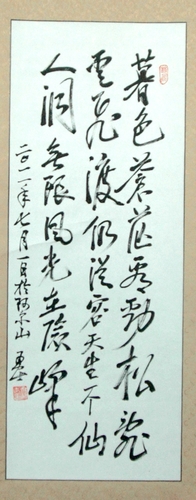 暮色苍茫看劲松乱
云飞渡仍从容天生一个仙
人洞无限风光在险峰
二〇一一年七月一日於阿尔山